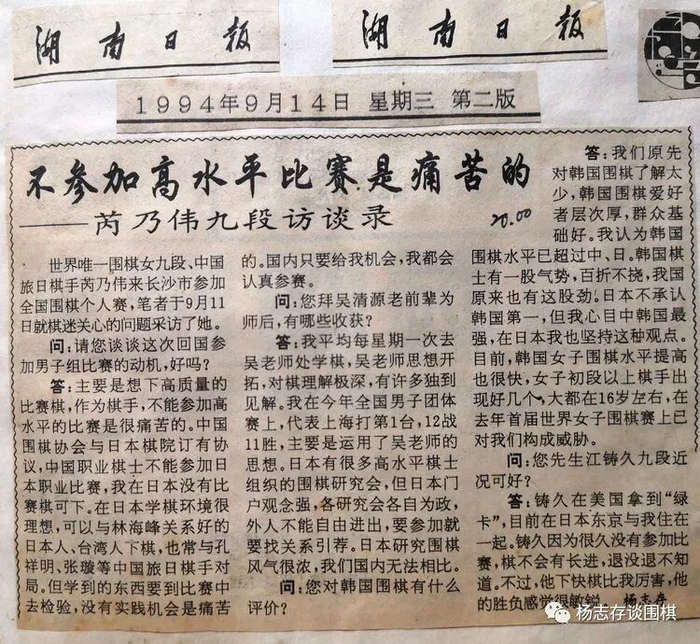 湖南日报
湖南日报
1994年9月14日 星期三 第二版
不参加高水平比赛是痛苦的
——芮乃伟九段访谈录
20.00
世界唯一围棋女九段、中国
旅日棋手芮乃伟来长沙市参加
全国围棋个人赛,笔者于9月11
日就棋迷关心的问题采访了她。
问:请您谈谈这次回国参
加男子组比赛的动机,好吗?
答:主要是想下高质量的
比赛棋,作为棋手,不能参加高
水平的比赛是很痛苦的。中国
围棋协会与日本棋院订有协
议,中国职业棋士不能参加日
本职业比赛,我在日本没有比
赛棋可下。在日本学棋环境很
理想,可以与林海峰关系好的
日本人、台湾人下棋,也常与孔
祥明、张璇等中国旅日棋手对
局。但学到的东西要到比赛中
去检验,没有实践机会是痛苦
的。国内只要给我机会,我都会
认真参赛。
问:您拜吴清源老前辈为
师后,有哪些收获?
答:我平均每星期一次去
吴老师处学棋,吴老师思想开
拓,对棋理解极深,有许多独到
见解。我在今年全国男子团体
赛上,代表上海打第1台,12战
11胜,主要是运用了吴老师的
思想。日本有很多高水平棋士
组织的围棋研究会,但日本门
户观念强,各研究会各自为政,
外人不能自由进出,要参加就
要找关系引荐。日本研究围棋
风气很浓,我们国内无法相比。
问:您对韩国围棋有什么
评价?
答:我们原先
对韩国围棋了解太
少,韩国围棋爱好
者层次厚,群众基
础好。我认为韩国
围棋水平已超过中、日。韩国棋
士有一股气势,百折不挠,我国
原来也有这股劲。日本不承认
韩国第一,但我心目中韩国最
强,在日本我也坚持这种观点。
目前,韩国女子围棋水平提高
也很快,女子初段以上棋手出
现好几个,大都在16岁左右,在
去年首届世界女子围棋赛上已
对我们构成威胁。
问:您先生江铸久九段近
况可好?
答:铸久在美国拿到“绿
卡”,目前在日本东京与我住在
一起。铸久因为很久没有参加比
赛,棋不会有长进,退没退不知
道。不过,他下快棋比我厉害,他
的胜负感觉很敏锐 杨志存
杨志存谈围棋